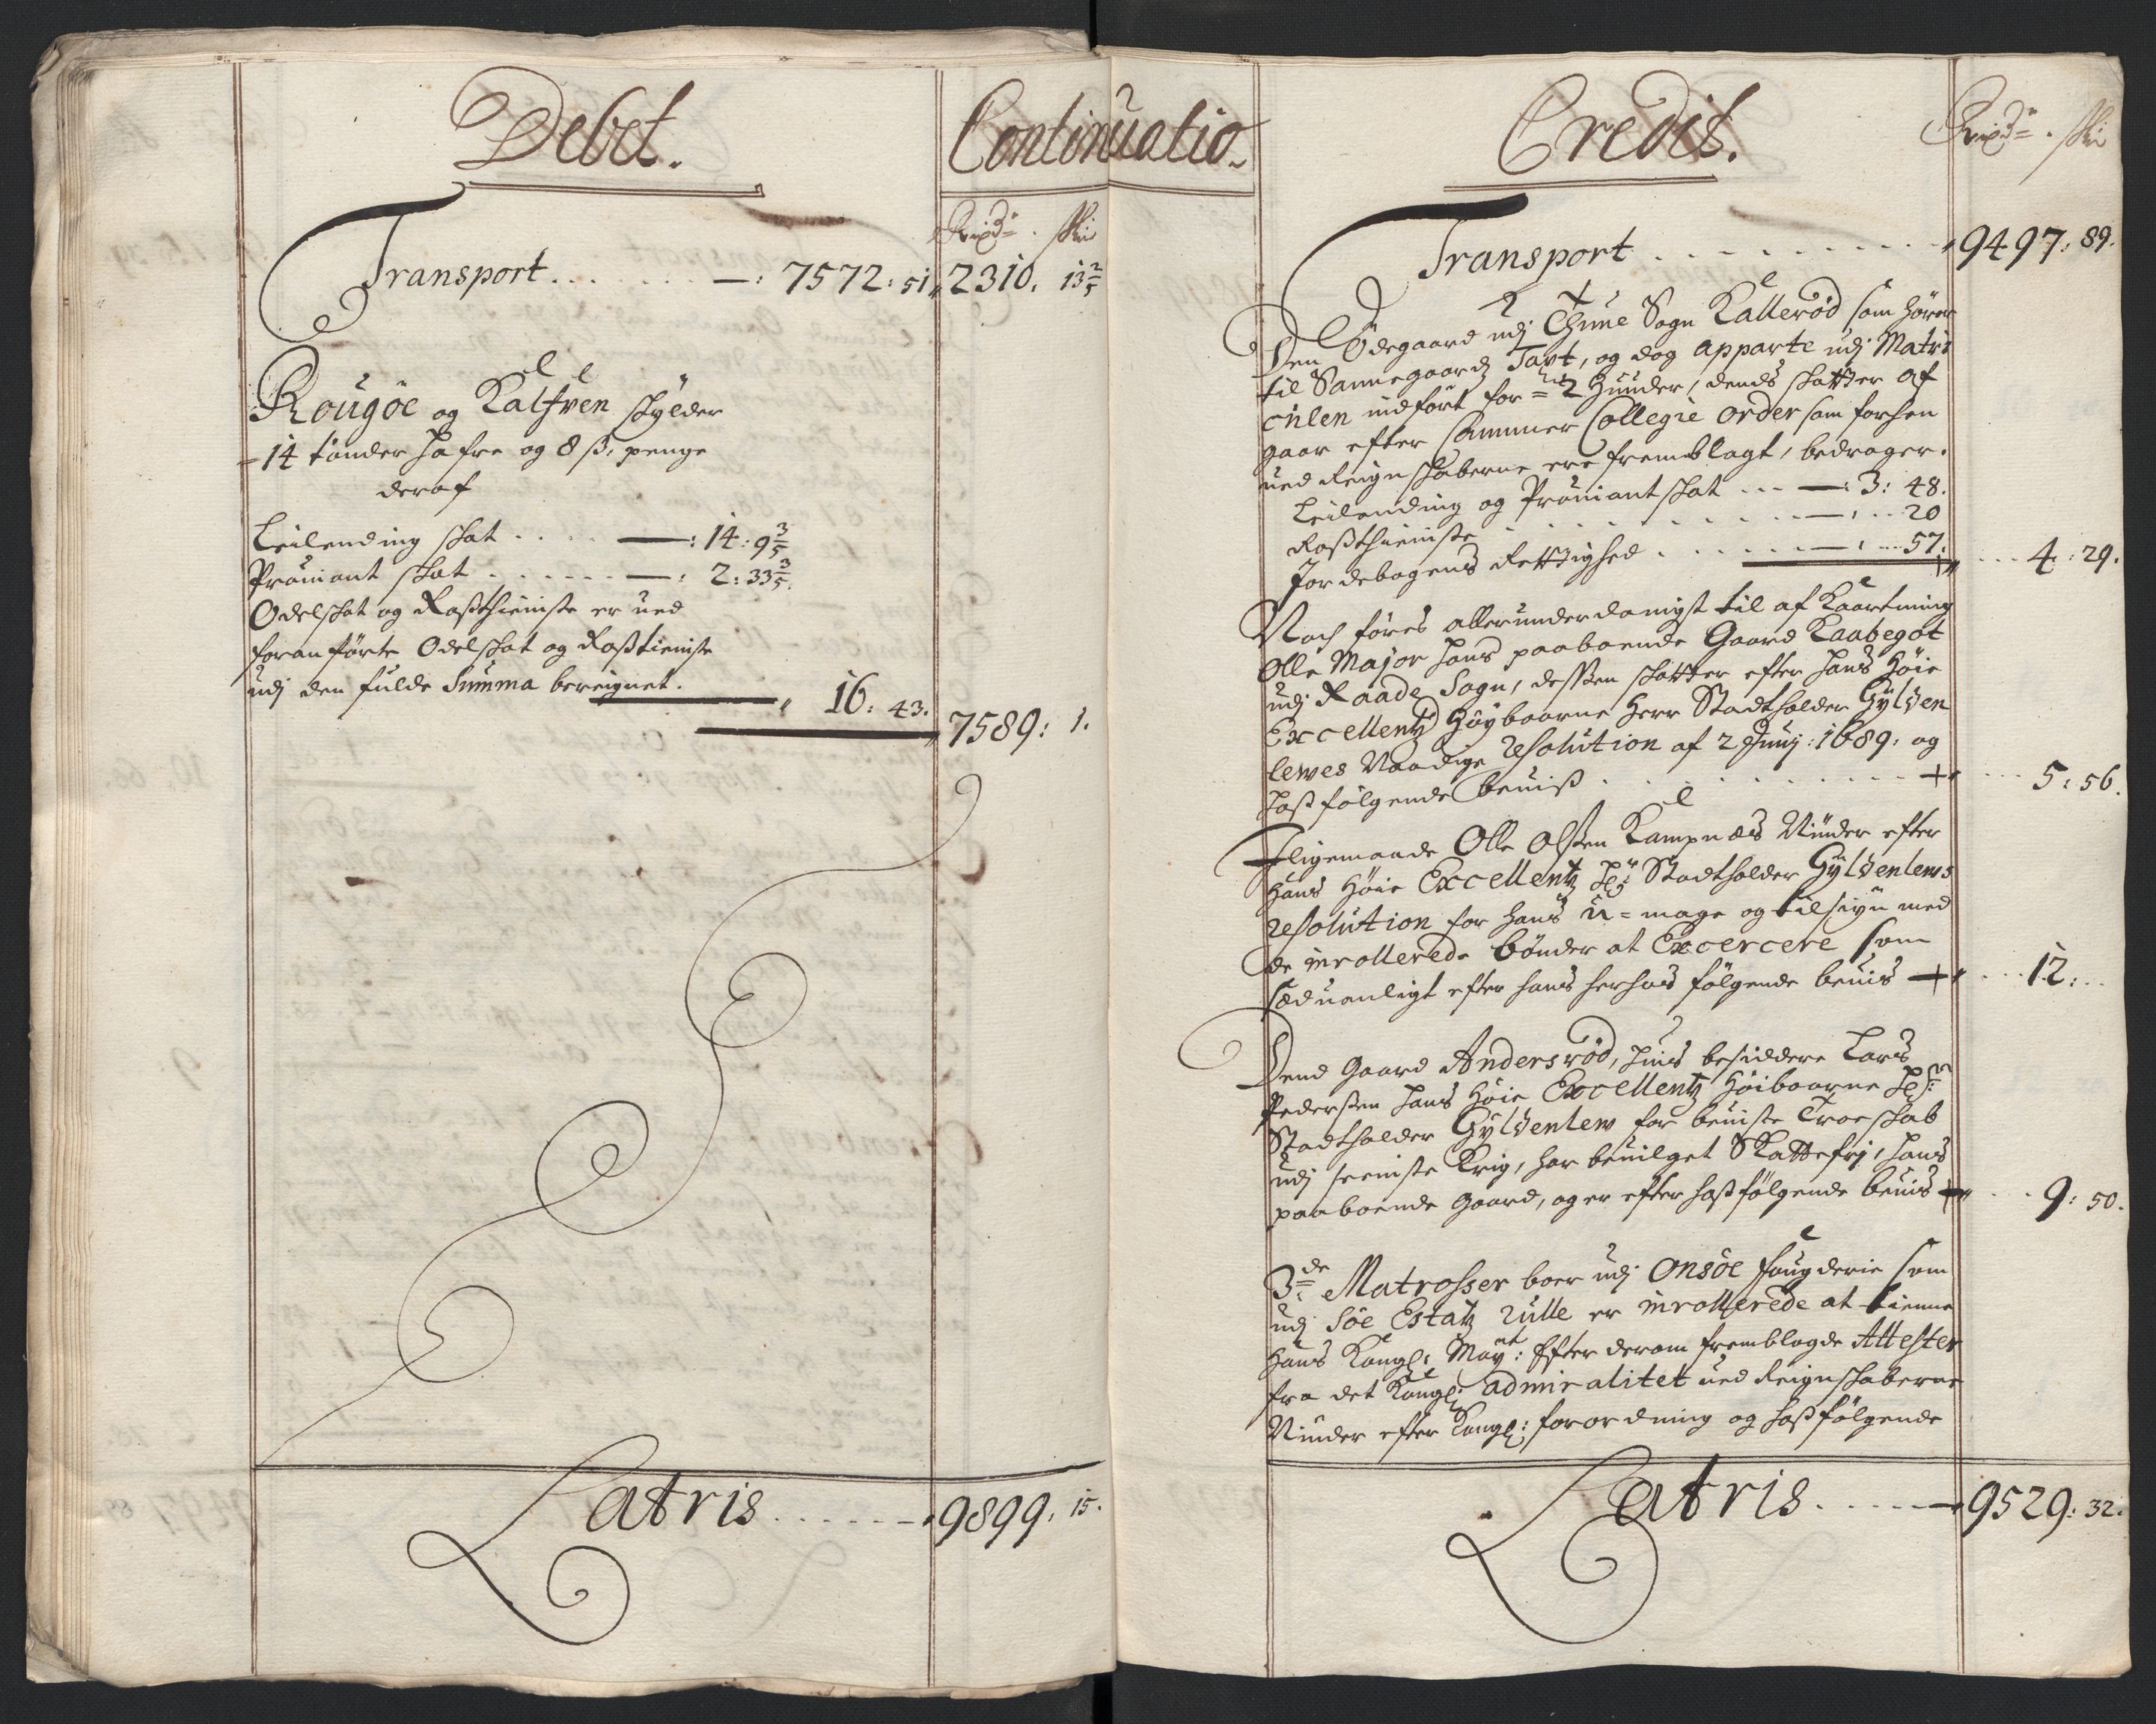 Debet.
Continuatio.
Rixdr. ski
Transport . . . . . . —: 7572: 51 2310. 13 2/5
Rougöe og Kalfven skylder
14 tønder Hafre og 8 ß. penge
deraf
Leilending skat . . . . —: 14: 9 3/5
Proviant skat . . . . . . —: 2: 33 3/5.
Odelskat og Roßthieniste er ued
foranførte Odelskat og Roßtieniste
udj den fulde Summa bereignet.
16: 43.
7589: 1.
Latris . . . . . . 9899. 15.
Credit.
Rixdr. ski
Transport . . . . . . . 9497: 89.
Den Ödegaard udj Thune Sogn Kallerød som hører
til Sannegaardz Taxt, og dog apparte udj Matri
culen indført for 2 Hunder, dends skatter af
gaar efter Cammer Collegie order som forhen
ued Reignskaberne ere fremblagt, bedrager.
Leilending og Proviant skat . . . —: 3: 48.
Roßthieniste . . . . . . . —: . . 20
Jordebogens Rettighed . . . . . —: . . 57.
4: 29.
Noch føres allerunderdanigst til af Kaartning
Olle Major hans paaboende Gaard Kaabegot
udj Raade Sogn, dessen skatter efter hans Høie
Excellentz Høybaarne Herr Stadtholder Gylden
lewes Naadige resolution af 2 Junij: 1689: og
hoßfølgende beuiß . . . . . . . 5: 56.
Jligemaade Olle Olßen Kampnæs Niuder efter
Hans Høie Excellentz Hr: Stadtholder Gyldenlews
resolution for hans u=mage og tilsiyn med
de inrollerede bønder at Excercere som
sæduanligt efter hans herhos følgende beuis . . . 12: . .
Dend Gaard Andersrød, huis besiddere Lars
Pederßen hans Høie Excellentz Høibaarne Hr:
Stadtholder Gyldenlew for beuiste Troeskab
udj seeniste Krig, har beuilget Skattefrj, hans
paaboende Gaard, og er efter hoßfølgende beuis . . 9: 50.
3de Matrosser boer udj Onsöe fougderie som
udj Söe Estatz rulle er inrollerede at tienne
Hans Kongl: Mayt: Efter derom fremblagde Attester
fra det Kongl: admiralitet ued Reignskaberne
Niuder efter Kongl: forordning og hoßfølgende
Latris . . . . . 9529: 32.